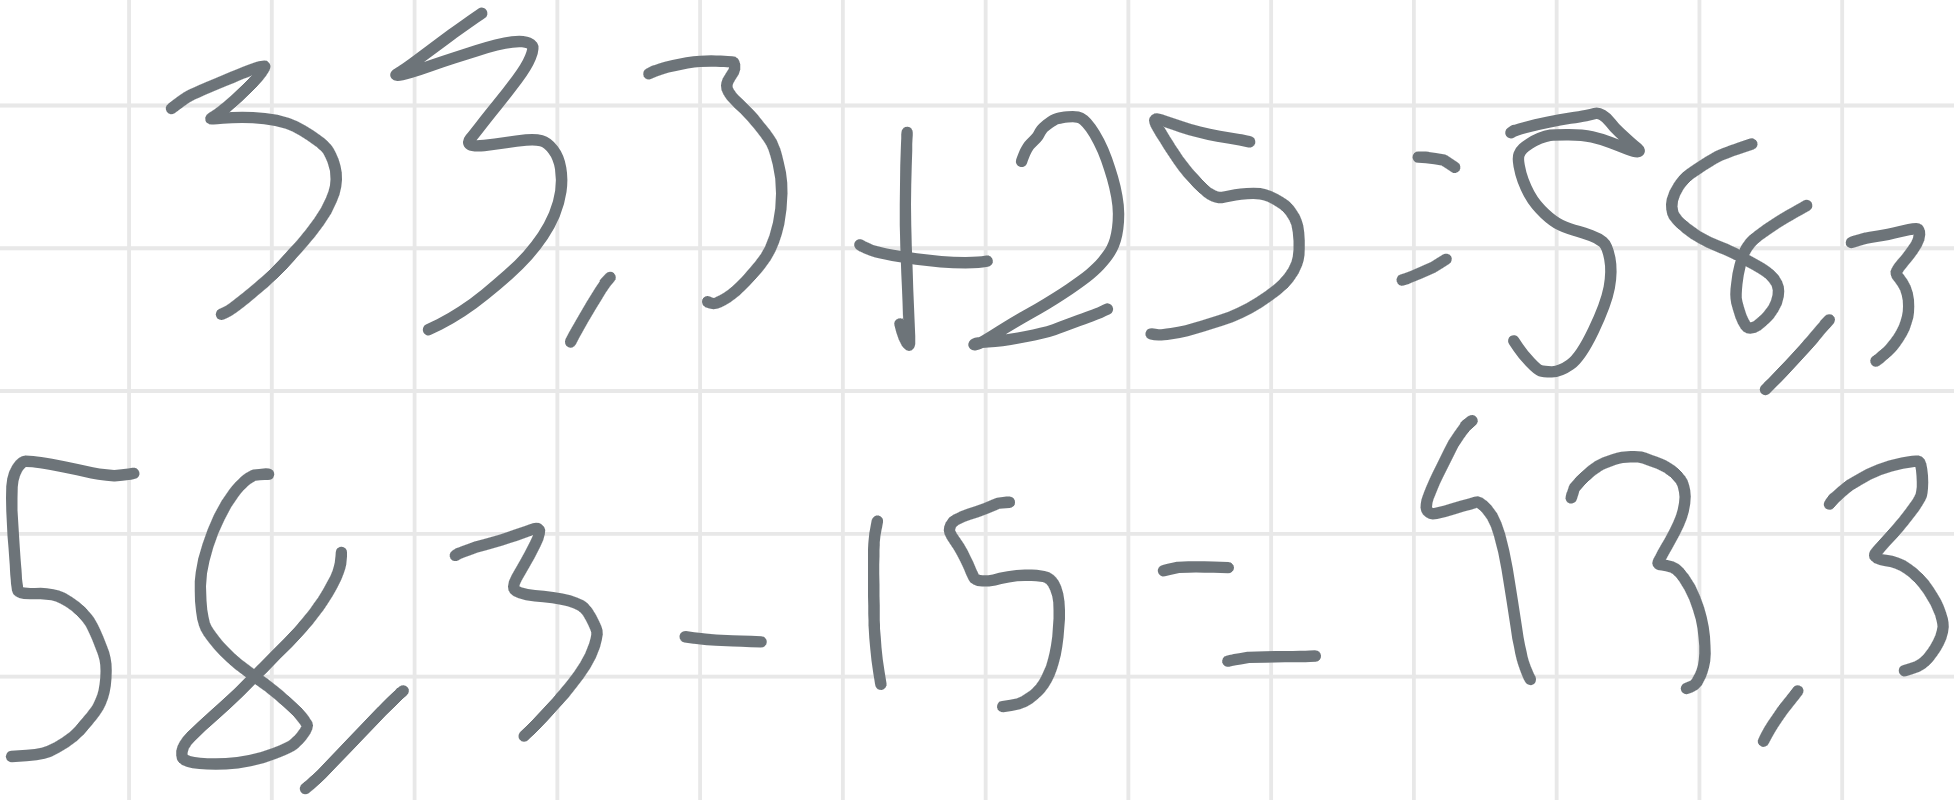 33,3+25=58,3
58,3-15=43,3